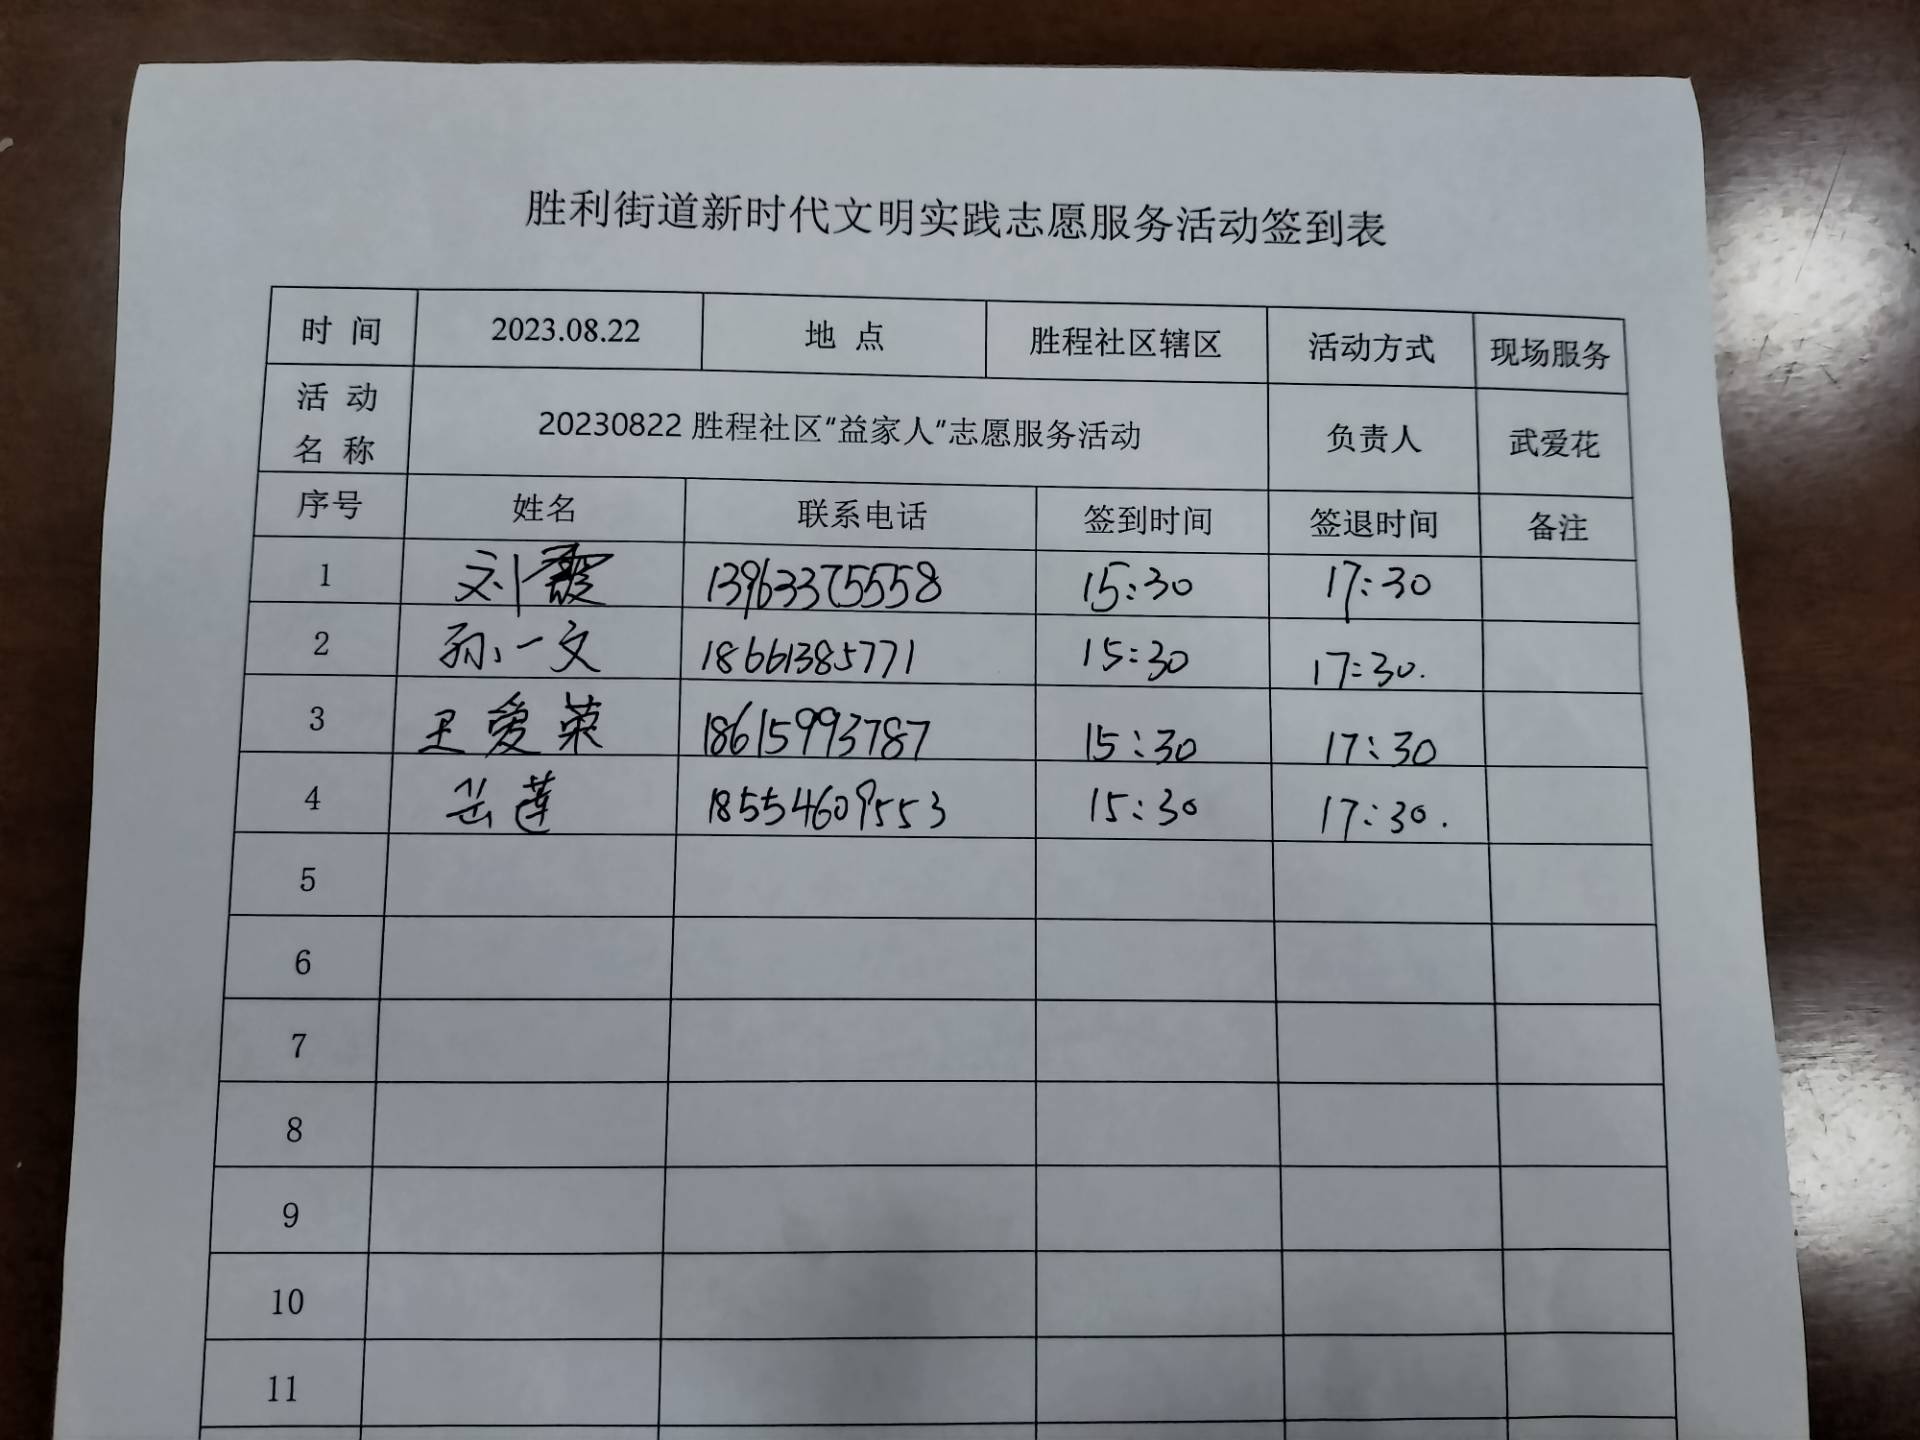 胜利街道新时代文明实践志愿服务活动签到表
时 间 2023.08.22 地 点 胜程社区辖区 活动方式 现场服务
活 动
名 称 20230822 胜程社区“益家人”志愿服务活动 负责人 武爱花
序号 姓名 联系电话 签到时间 签退时间 备注
1 刘霞 13963375558 15:30 17:30
2 孙一文 18661385771 15:30 17:30.
3 王爱荣 18615993787 15:30 17:30
4 岳莲 18554609553 15:30 17:30.
5
6
7
8
9
10
11